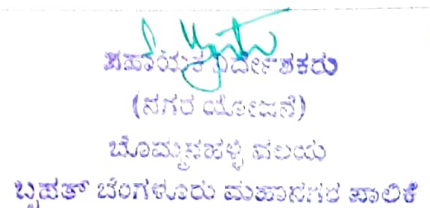 ಸಹಾಯಕ ನಿರ್ದೇಶಕರು
(ನಗರ ಯೋಜನೆ)
ಬೊಮ್ಮನಹಳ್ಳಿ ವಲಯ
ಬೃಹತ್ ಬೆಂಗಳೂರು ಮಹಾನಗರ ಪಾಲಿಕೆ